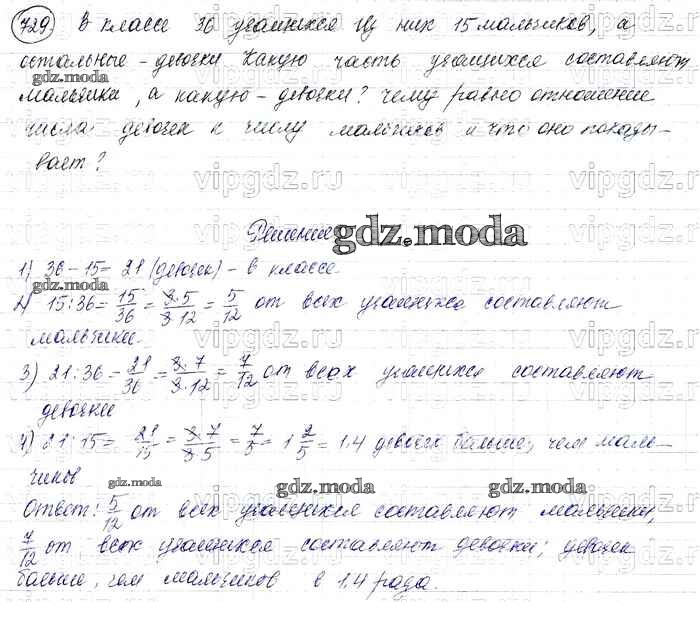 729. В классе 36 учащихся Из них 15 мальчиков, а
остальные - девочки Какую часть учащихся составляют
мальчики, а какую - девочки? Чему равно отношение
числа девочек к числу мальчиков и что оно показы-
вает?
Решение
1) 36 - 15 = 21 (девочек) - в классе
2) 15:36 = 15/36 = 3·5/3·12 = 5/12 от всех учащихся составляют
мальчики.
3) 21:36 = 21/36 = 3·7/3·12 = 7/12 от всех учащихся составляют
девочки
4) 21:15 = 21/15 = 3·7/3·5 = 7/5 = 1 2/5 = 1.4 девочек больше, чем маль-
чиков
Ответ: 5/12 от всех учащихся составляют мальчики,
7/12 от всех учащихся составляют девочки; девочек
больше, чем мальчиков в 1.4 раза.
gdz.moda
gdz.moda
gdz.moda
gdz.moda
gdz.moda
gdz.moda
vipgdz.ru